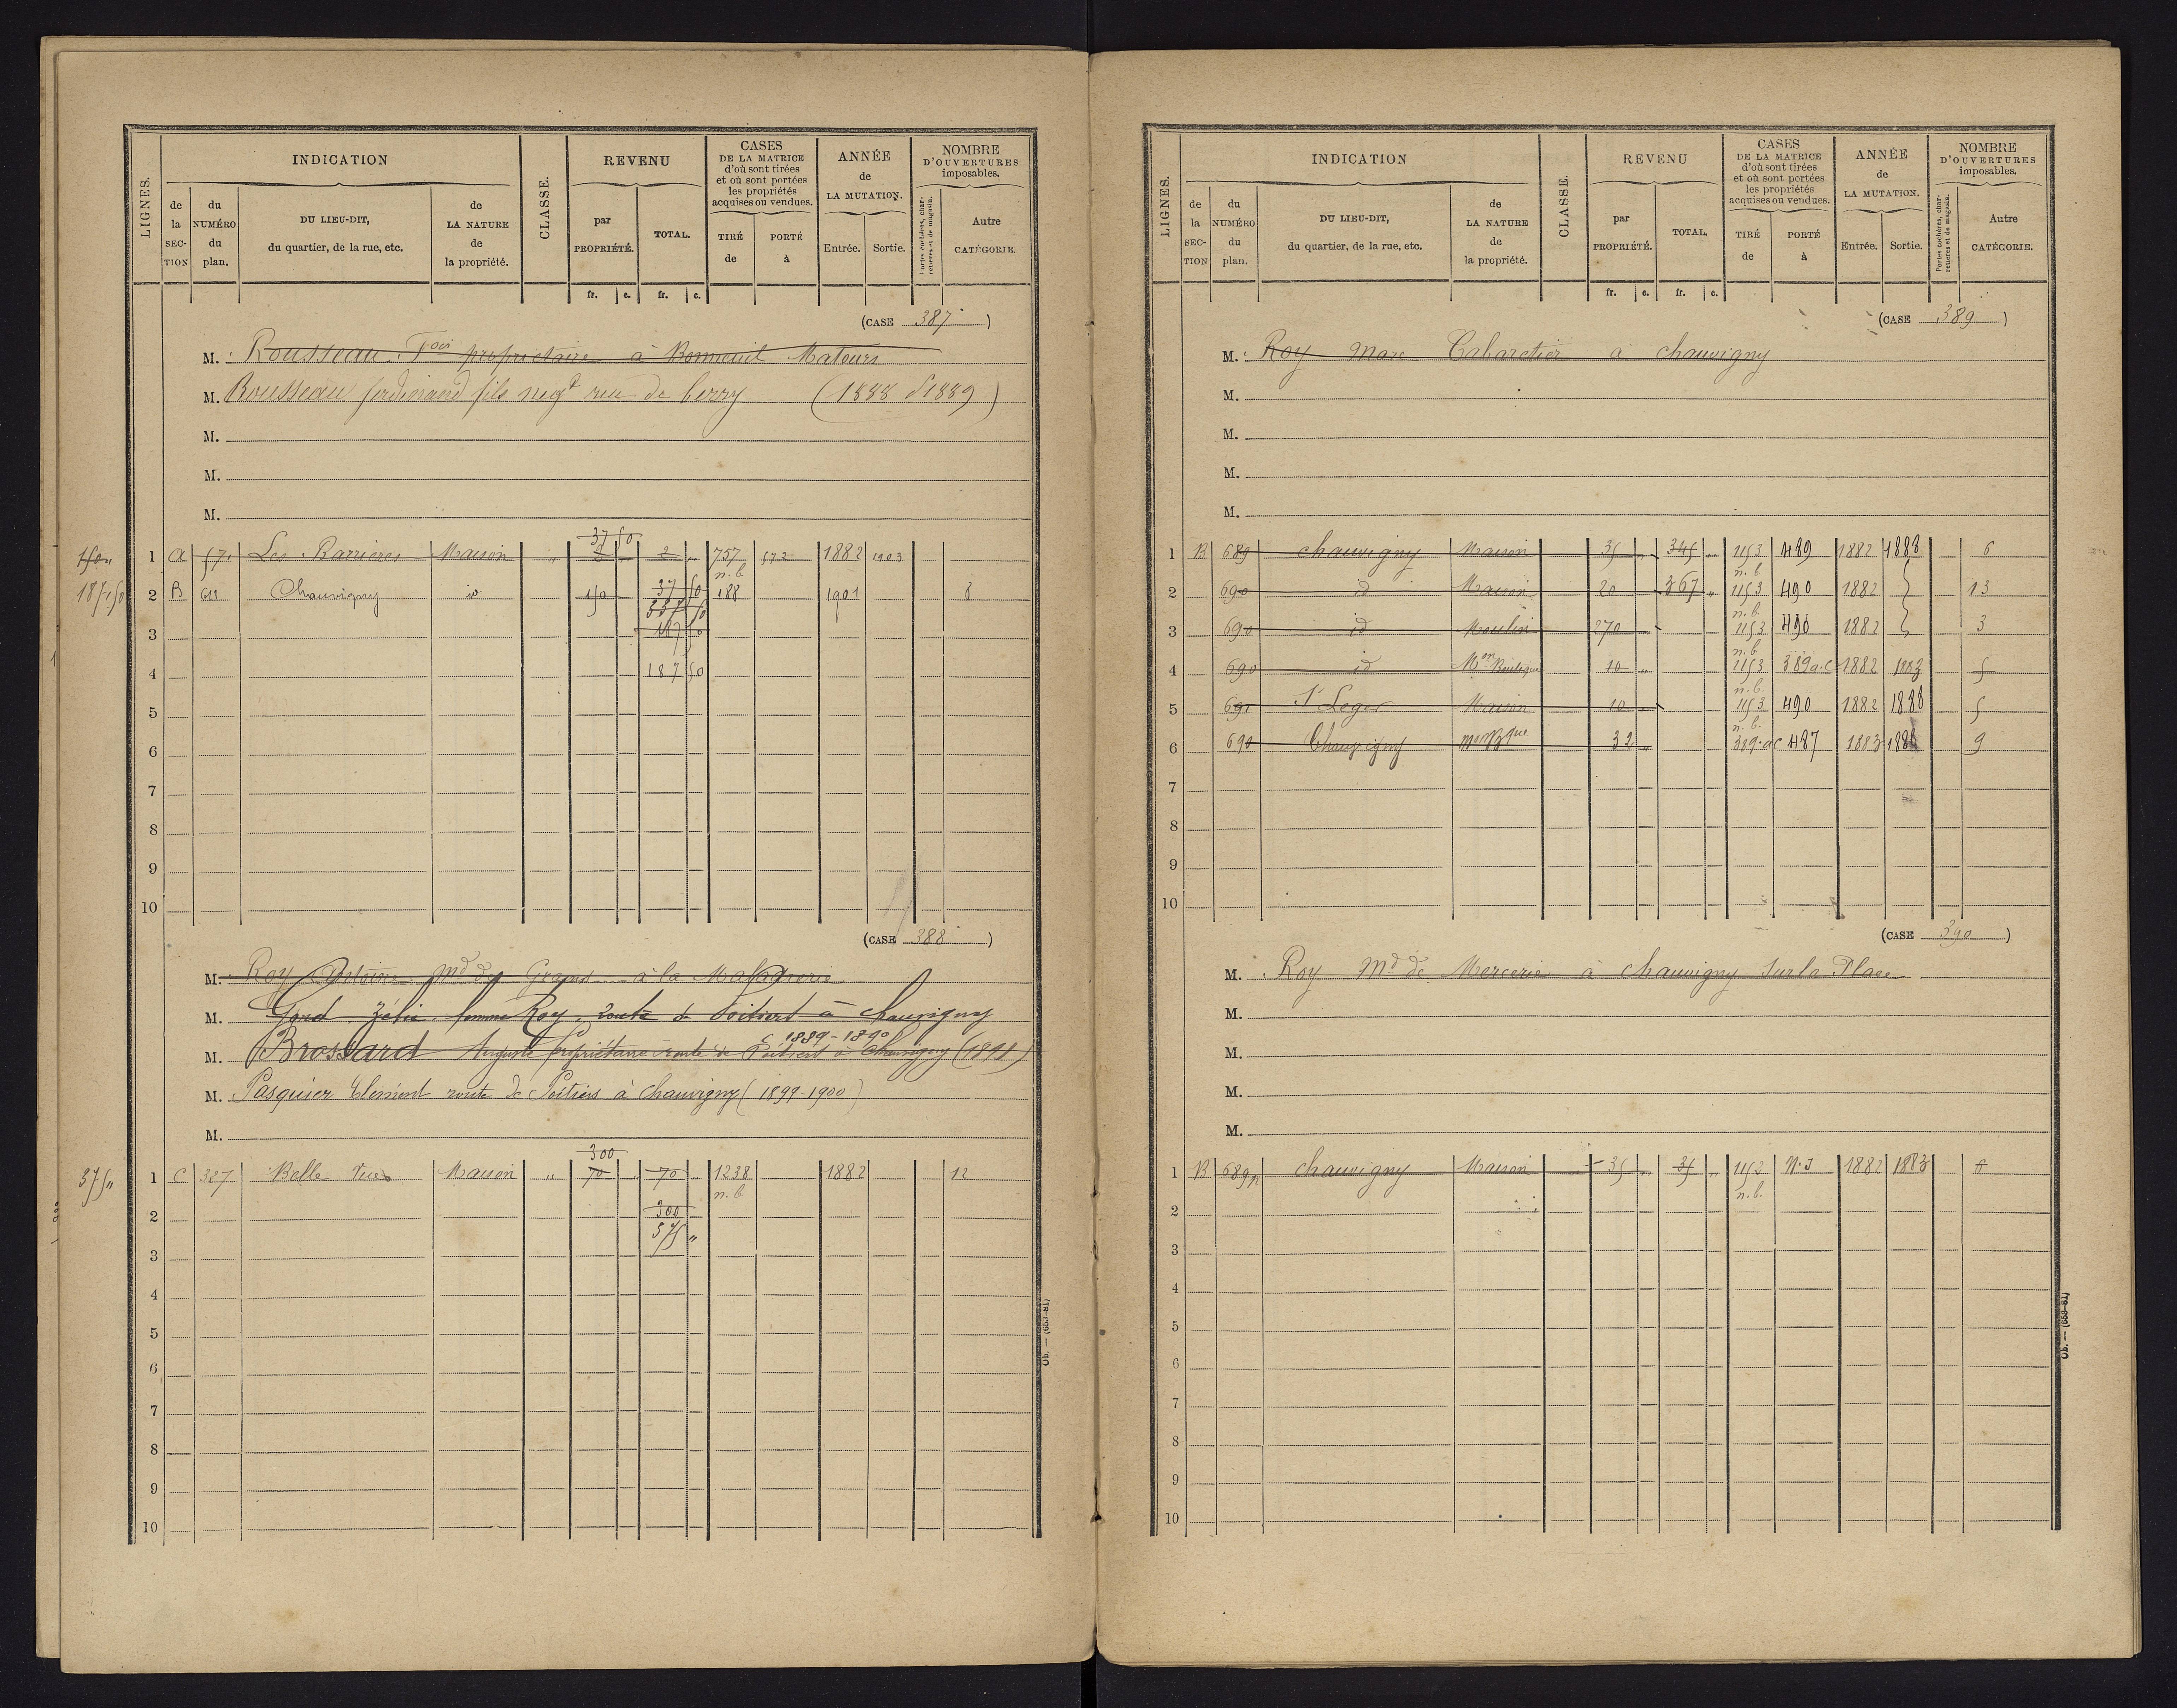 LIGNES. INDICATION CLASSE. REVENU CASES DE LA MATRICE d'où sont tirées et où sont portées les propriétés acquises ou vendues. ANNÉE de LA MUTATION. NOMBRE D'OUVERTURES imposables.
de la SECTION du NUMÉRO du plan. DU LIEU-DIT, du quartier, de la rue, etc. de LA NATURE de la propriété. par PROPRIÉTÉ. TOTAL. TIRÉ de PORTÉ à Entrée. Sortie. Portes cochères, charretières et de magasin. Autre CATÉGORIE.
fr. c. fr. c.
(CASE 387)
M. Rousseau Fois propriétaire à Bonneuil Matours
M. Rousseau ferdinand fils negt rue de berry (1888 & 1889)
M.
M.
M.
37 50
150 " 1 A 571 Les Barrieres Maison " 2 " 2 " 757 572 1882 1903
n. b.
187,50 2 B 611 Chauvigny id 150 37 50 188 1901 8
337 50
3 187 50
4 187 50
5
6
7
8
9
10
(CASE 388)
M. Roy Antoine Md de Grains à la
M. Gond Zélie femme Roy, route de Poitiers à Chauvigny
1889-1890
M. Brossard Auguste propriétaire route de Poitiers à Chauvigny (1891)
M. Pasquier Clément route de Poitiers à Chauvigny (1899-1900)
M.
300
375 " 1 C 387 Belle Maison " 70 " 70 " 1238 1882 12
n. b.
2 300
375 "
3
4
5
6
7
8
9
10
Ob. — (653-81)
LIGNES. INDICATION CLASSE. REVENU CASES DE LA MATRICE d'où sont tirées et où sont portées les propriétés acquises ou vendues. ANNÉE de LA MUTATION. NOMBRE D'OUVERTURES imposables.
de la SECTION du NUMÉRO du plan. DU LIEU-DIT, du quartier, de la rue, etc. de LA NATURE de la propriété. par PROPRIÉTÉ. TOTAL. TIRÉ de PORTÉ à Entrée. Sortie. Portes cochères, charretières et de magasin. Autre CATÉGORIE.
fr. c. fr. c.
(CASE 389)
M. Roy Marc Cabaretier à chauvigny
M.
M.
M.
M.
1 B 689 chauvigny Maison 35 " 345 " 1153 489 1882 1888 6
n. b.
2 690 id Maison 20 367 " 1153 490 1882 13
n. b.
3 690 id Moulin 270 1153 490 1882 3
n. b.
4 690 id Mon Boutique 10 " 1153 389 a.c 1882 1883 5
n. b.
5 691 St Leger Maison 10 1153 490 1882 1888 5
n. b.
6 690 Chauvigny 32 " 389.ac 487 1883 1888 9
7
8
9
10
(CASE 390)
M. Roy Md de Mercerie à Chauvigny sur la Place
M.
M.
M.
M.
1 B 689p chauvigny Maison 35 " 35 " 1152 1882 1883 6
n. b.
2
3
4
5
6
7
8
9
10
Ob. — (653-81)